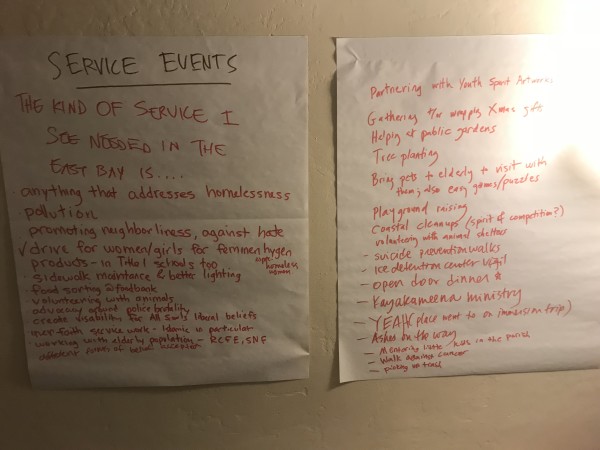 SERVICE EVENTS
THE KIND OF SERVICE I
SEE NEEDED IN THE
EAST BAY IS....
· anything that addresses homelessness
· pollution
promoting neighborliness, against hate
✓ drive for women/girls for feminen hygen
products - in Title 1 schools too
homeless
women
· sidewalk maintance & better lighting
· food sorting @ foodbank
· volunteering with animals
advocacy against police brutality
create visability for All Souls liberal beliefs
· interfaith service work - Islamic in particular
· working with elderly population - RCFE, SNF
different
Partnering with Youth Spirit Artworks
Gathering &/or wrapping Xmas gifts
Helping at public gardens
Tree planting
Bring pets to elderly & visit with
them; also easy games/puzzles
Playground raising
Coastal cleanups (spirit of competition?)
volunteering with animal shelters
- suicide prevention walks
- Ice detention center vigil
- open door dinner *
- Kayakameena ministry
- YEAH (place next to on immersion trip)
- Ashes on the way
- Mentoring little in the parish
- Walk against cancer
- picking up trash